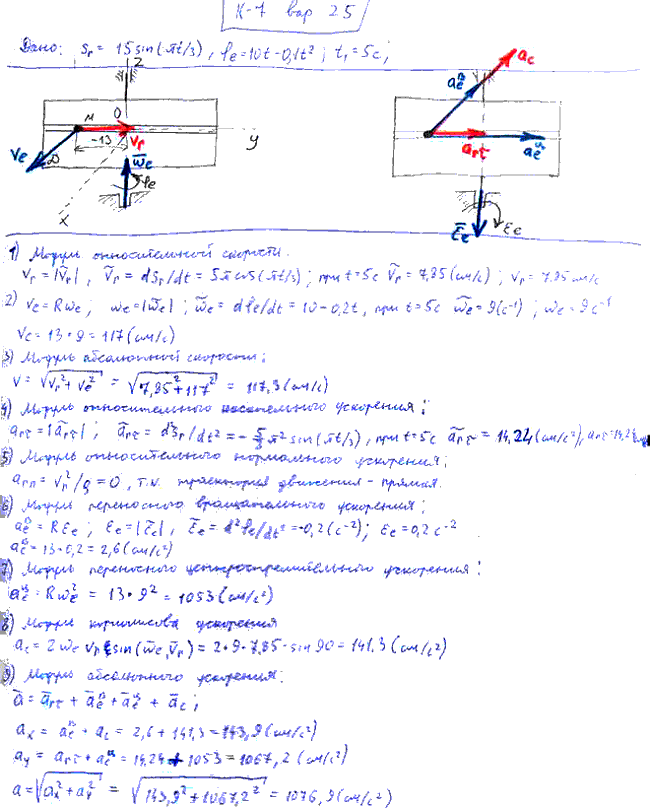 К-7 вар 25
Дано: Sr = 15 sin(πt/3), φe = 10t - 0,1t²; t₁ = 5c;
z
M O
y
Vr
-13
Ve
ω̄e
φe
x
ac
aeᵇ
arτ
aeᵘ
ε̄e
εe
1) Модуль относительной скорости.
Vr = |Ṽr|, Ṽr = dSr/dt = 5π cos(πt/3); при t=5c Ṽr = 7,85 (см/с); Vr = 7.85 см/с
2) Ve = Rωe; ωe = |ω̃e|; ω̃e = dφe/dt = 10 - 0.2t, при t=5c ω̃e = 9 (c⁻¹); ωe = 9 c⁻¹
Ve = 13 • 9 = 117 (см/с)
3) Модуль абсолютной скорости;
V = √(Vr² + Ve²) = √(7,85² + 117²) = 117,3 (см/с)
4) Модуль относительного касательного ускорения:
arτ = |ãrτ|; ãrτ = d²Sr/dt² = - 5/3 π² sin(πt/3), при t=5c ãrτ = 14,24 (см/с²), arτ = 14,24
5) Модуль относительного нормального ускорения;
arn = Vr²/ρ = 0, т.к. траектория движения - прямая.
6) Модуль переносного вращательного ускорения;
aeᵇ = Rεe; εe = |ε̃e|, ε̃e = d²φe/dt² = -0,2 (c⁻²); εe = 0,2 c⁻²
aeᵇ = 13 • 0,2 = 2,6 (см/с²)
7) Модуль переносного центростремительного ускорения:
aeᵘ = Rωe² = 13 • 9² = 1053 (см/с²)
8) Модуль кориолисова ускорения
ac = 2 ωe Vr sin(ω̄e, V̄r) = 2 • 9 • 7,85 • sin 90 = 141,3 (см/с²)
9) Модуль абсолютного ускорения:
ā = ārτ + āeᵇ + āeᵘ + āc;
ax = aeᵇ + ac = 2,6 + 141,3 = 143,9 (см/с²)
ay = arτ + aeᵘ = 14.24 + 1053 = 1067,2 (см/с²)
a = √(ax² + ay²) = √(143,9² + 1067,2²) = 1076,9 (см/с²)